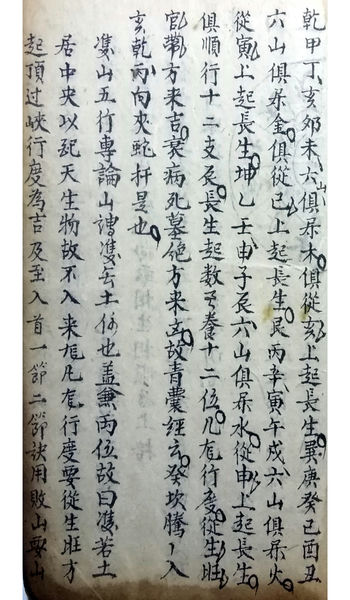 乾甲丁亥卯未六山俱属木俱從亥上起長生巽庚癸巳酉丑
六山俱属金俱從巳上起長生艮丙辛寅午戌六山俱属火
從寅上起長生坤乙壬申子辰六山俱属水從申上起長生
俱順行十二支辰長生起數至養十二位凡龍行度從生旺
官帶方来吉衰病死墓絕方来凶故青囊經云癸坎騰々入
亥乾丙向夾蛇扦是也
雙山五行專論山雙無土何也蓋兼兩位故曰雙若土
居中央以起天生物故不入来龍凡龍行度要從生旺方
起頂过峽行度為吉及至入首一節二節訣用敗山山